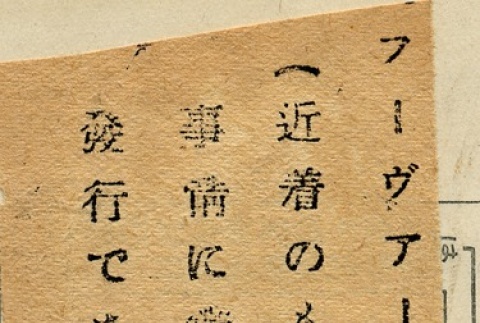 フーヴァー
(近着の
事情に
發行で